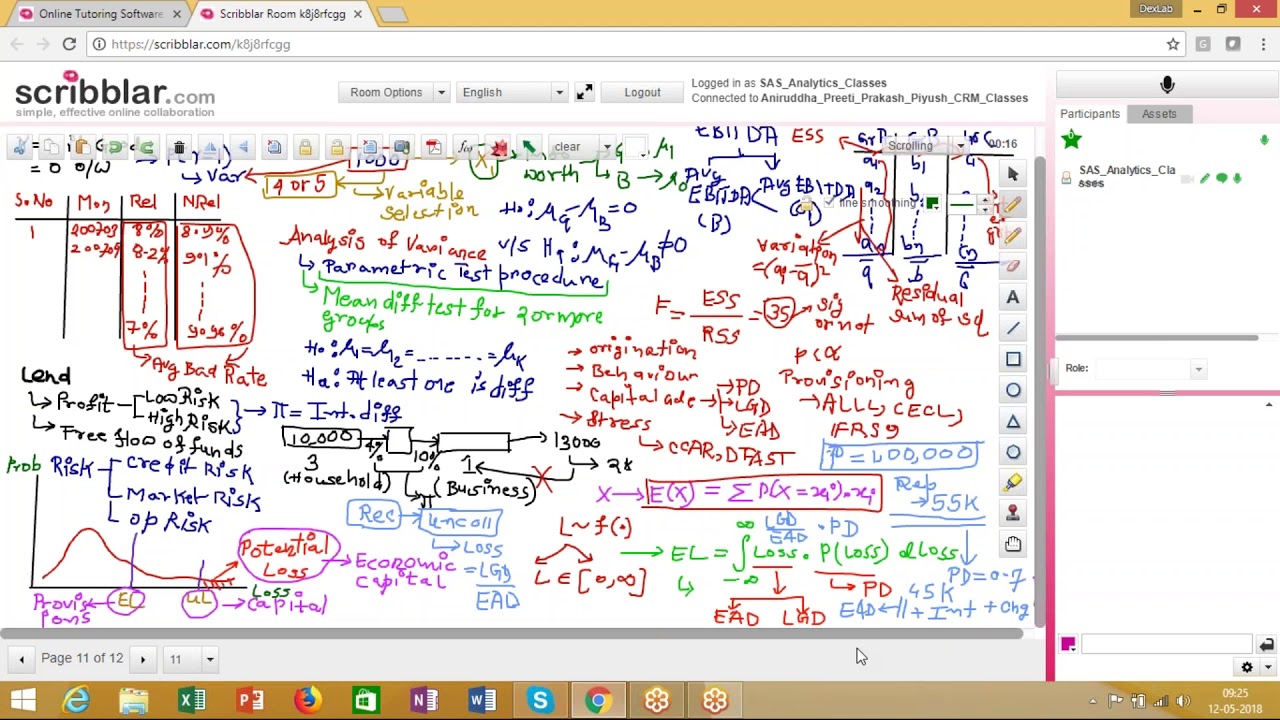 DexLab
Online Tutoring Software
Scribblar Room k8j8rfcgg
https://scribblar.com/k8j8rfcgg
scribblar.com
simple, effective online collaboration
Room Options
English
Logout
Logged in as SAS_Analytics_Classes
Connected to Aniruddha_Preeti_Prakash_Piyush_CRM_Classes
clear
Scrolling
00:16
line smoothing
Participants
Assets
SAS_Analytics_Cla
sses
Role:
= 0 o/w
Var
1000
4 or 5
Variable
selection
worth
G → μ1
B → μ0
EBITDA
ESS
Avg
EBITDA
(B)
Avg EBITDA
(G)
S.No Mon Rel NRel
1 200708 8% 8.9%
200709 8.2% 9.1%
7% 9.96%
Avg Bad Rate
H0: μG - μB = 0
v/s Ha: μG - μB ≠ 0
Analysis of Variance
Parametric Test procedure
Mean diff test for 2 or more
groups
H0: μ1 = μ2 = ........ = μK
Ha: At least one is diff
Variation
= (a1 - a)²
Residual
sum of sq
F = ESS
RSS
= 35 → sig
or not
p < α
→ origination
→ Behaviour
→ Capital ade → PD
→ LGD
→ EAD
→ Stress
→ CCAR, DFAST
Provisioning
→ ALLL, CECL,
IFRS9
P = 100,000
Lend
Profit
Low Risk
High Risk
→ π = Int. diff
Free flow of funds
10,000
4%
10%
13000
2x
3
(Household)
1
(Business)
π
Prob
Risk
Credit Risk
Market Risk
Op Risk
Potential
Loss
→ Economic
Capital
Loss
Provis
ions
EL
UL → Capital
Rec → Uncoll
Loss
= LGD
EAD
X → E(X) = Σ P(X = xi) . xi
Rep
55K
L ~ f(.)
L ∈ [0, ∞]
LGD
EAD
. PD
EL = ∫ Loss . P(Loss) dLoss
∞
-∞
PD
EAD LGD
PD = 0.7
45K
EAD ← 11 + Int + Chg
Page 11 of 12
11
09:25
12-05-2018